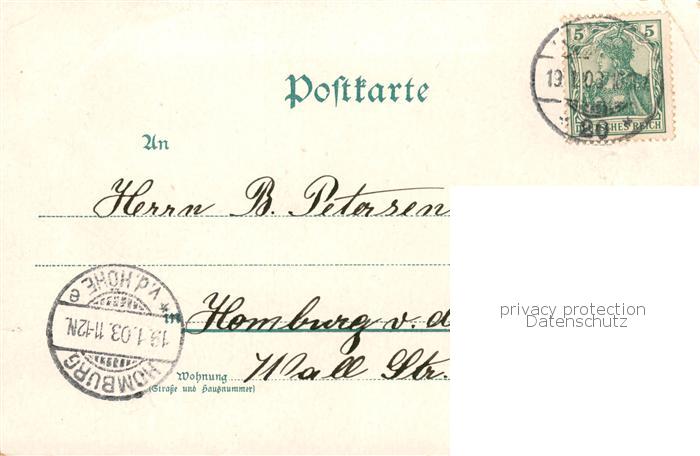 5 5
DEUTSCHES REICH
20
Postkarte
An
Herrn B. Petersen
in Homburg v. d
Wall Str.
Wohnung
(Straße und Hausnummer)
HOMBURG
v.d. HÖHE e
19.1.03. 11-12N.
privacy protection
Datenschutz